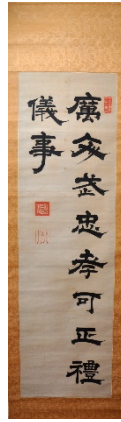 廣文武忠孝可正禮
儀事